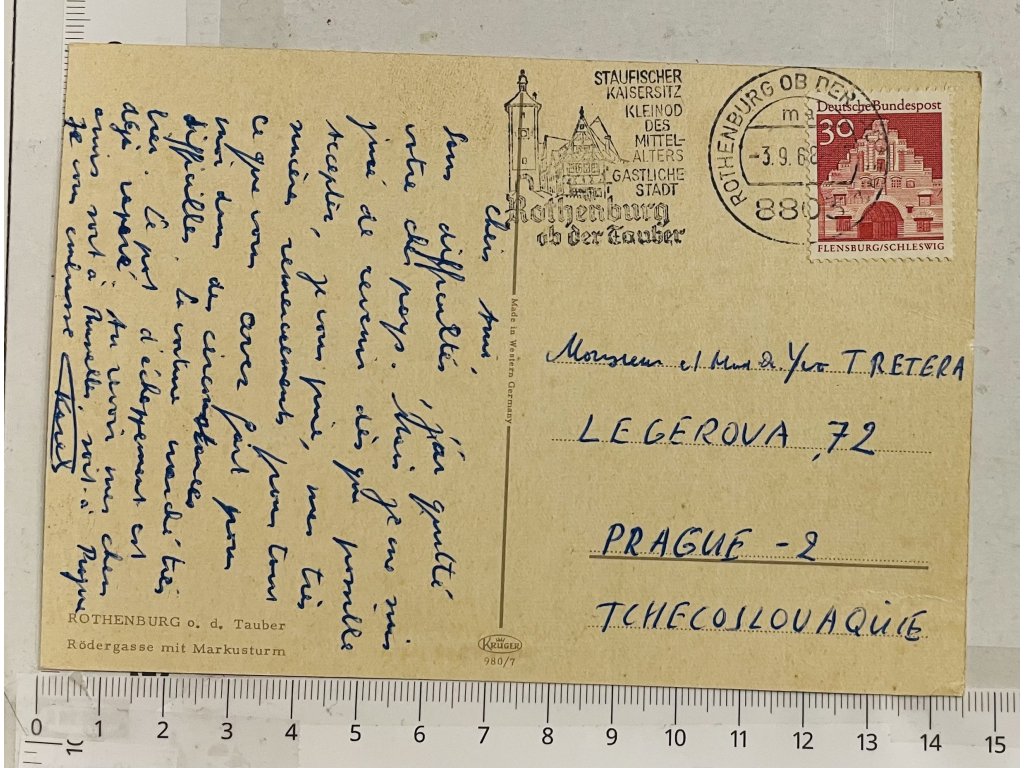 STAUFISCHER
KAISERSITZ
KLEINOD
DES
MITTEL-
ALTERS
GASTLICHE
STADT
Rothenburg
ob der Tauber
ROTHENBURG OB DER
-3.9.68
8803
Deutsche Bundespost
30
FLENSBURG/SCHLESWIG
Chers Amis
Sans difficultés j'ai quitté
votre cher pays. Mais je me suis
juré de revenir dès que possible
Acceptés, je vous prie, mes très
sincères remerciements pour tout
ce que vous avez fait pour
moi dans des circonstances
difficilles. La voiture marche très
bien. Le pot d'échappement est
déjà reparé. Au revoir mes chers
amis soit à Bruxelles, soit à Prague
Je vous embrasse
Made in Western Germany
Monsieur et Mad. TRETERA
LEGEROVA 72
PRAGUE - 2
TCHECOSLOVAQUIE
ROTHENBURG o. d. Tauber
Rödergasse mit Markusturm
KRÜGER
980/7
0 1 2 3 4 5 6 7 8 9 10 11 12 13 14 15